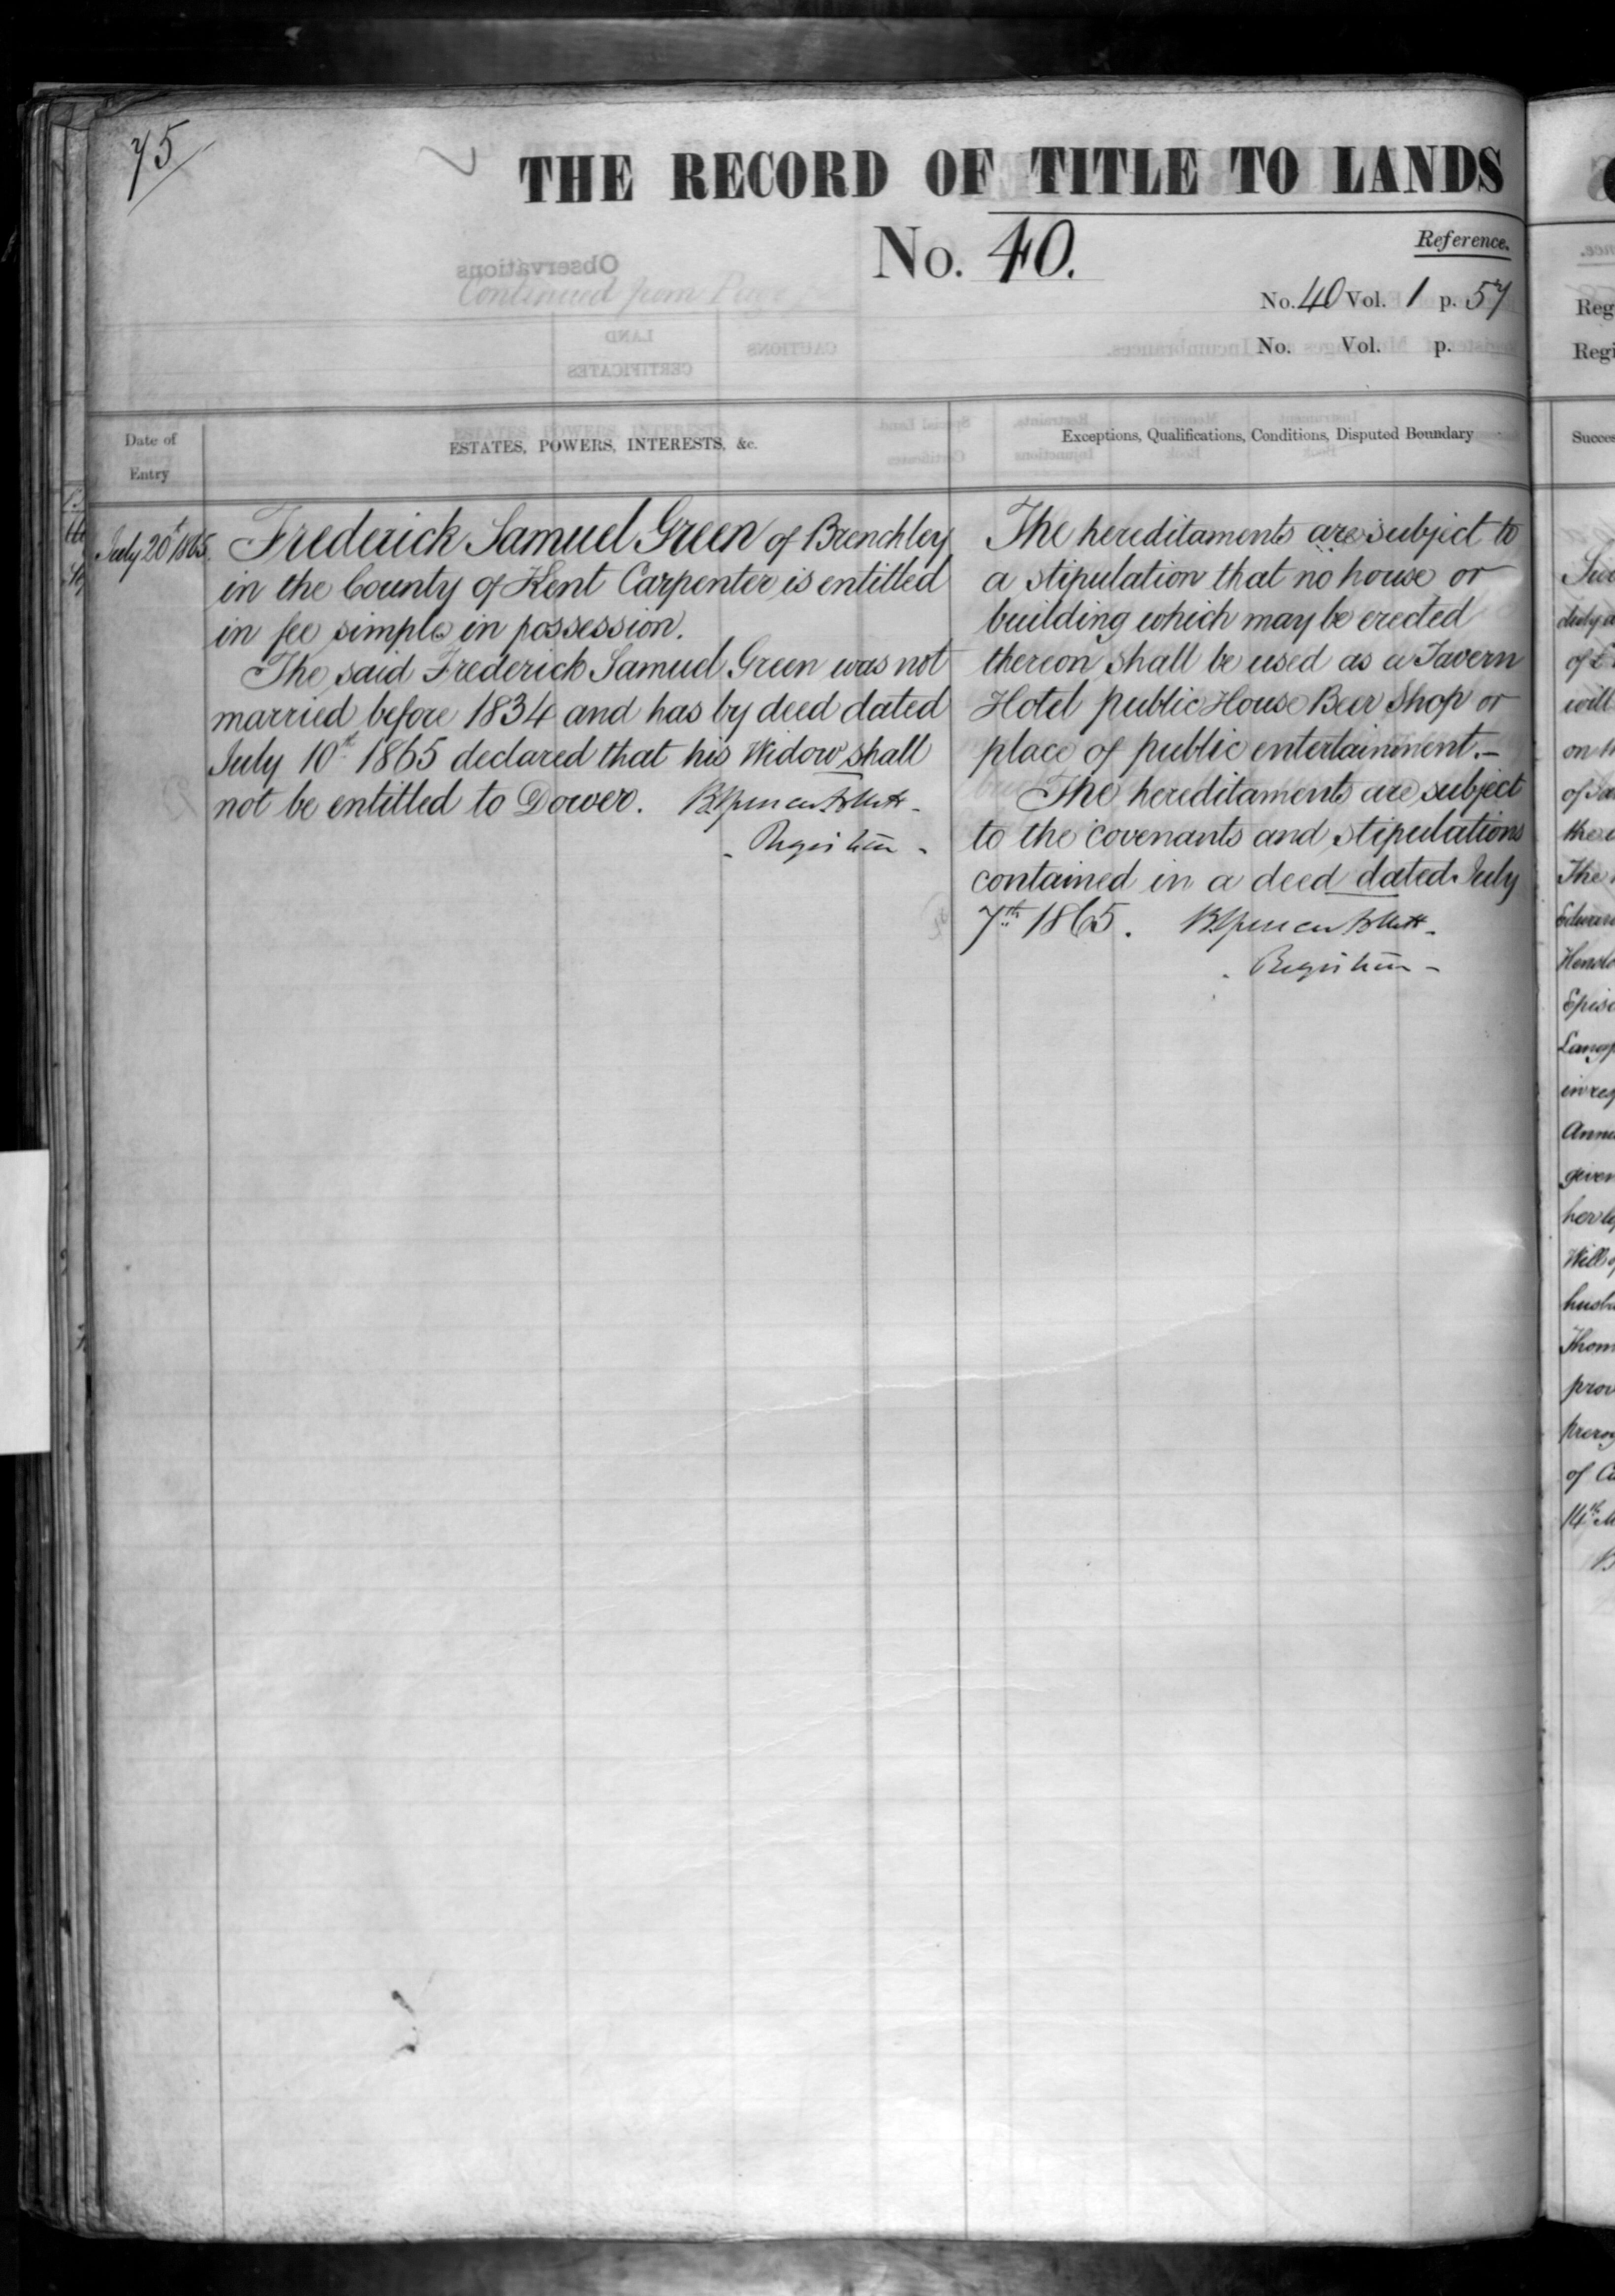 75
THE RECORD OF TITLE TO LANDS
No. 40.
Reference.
No. 40 Vol. 1 p. 57
No. Vol. p.
Date of
Entry
ESTATES, POWERS, INTERESTS, &c.
Exceptions, Qualifications, Conditions, Disputed Boundary
July 20th 1865.
Frederick Samuel Green of Brenchley
in the County of Kent Carpenter is entitled
in fee simple in possession.
The said Frederick Samuel Green was not
married before 1834 and has by deed dated
July 10th 1865 declared that his Widow shall
not be entitled to Dower.
Registrar
The hereditaments are subject to
a stipulation that no house or
building which may be erected
thereon shall be used as a Tavern
Hotel public House Beer Shop or
place of public entertainment.
The hereditaments are subject
to the covenants and stipulations
contained in a deed dated July
7th 1865.
Registrar
Reg
Regi
Succes
duly a
of
will
on
of
the
The
Edward
Episc
in
given
her
Will of
husb
Thom
prov
prerog
of Ca
14th M